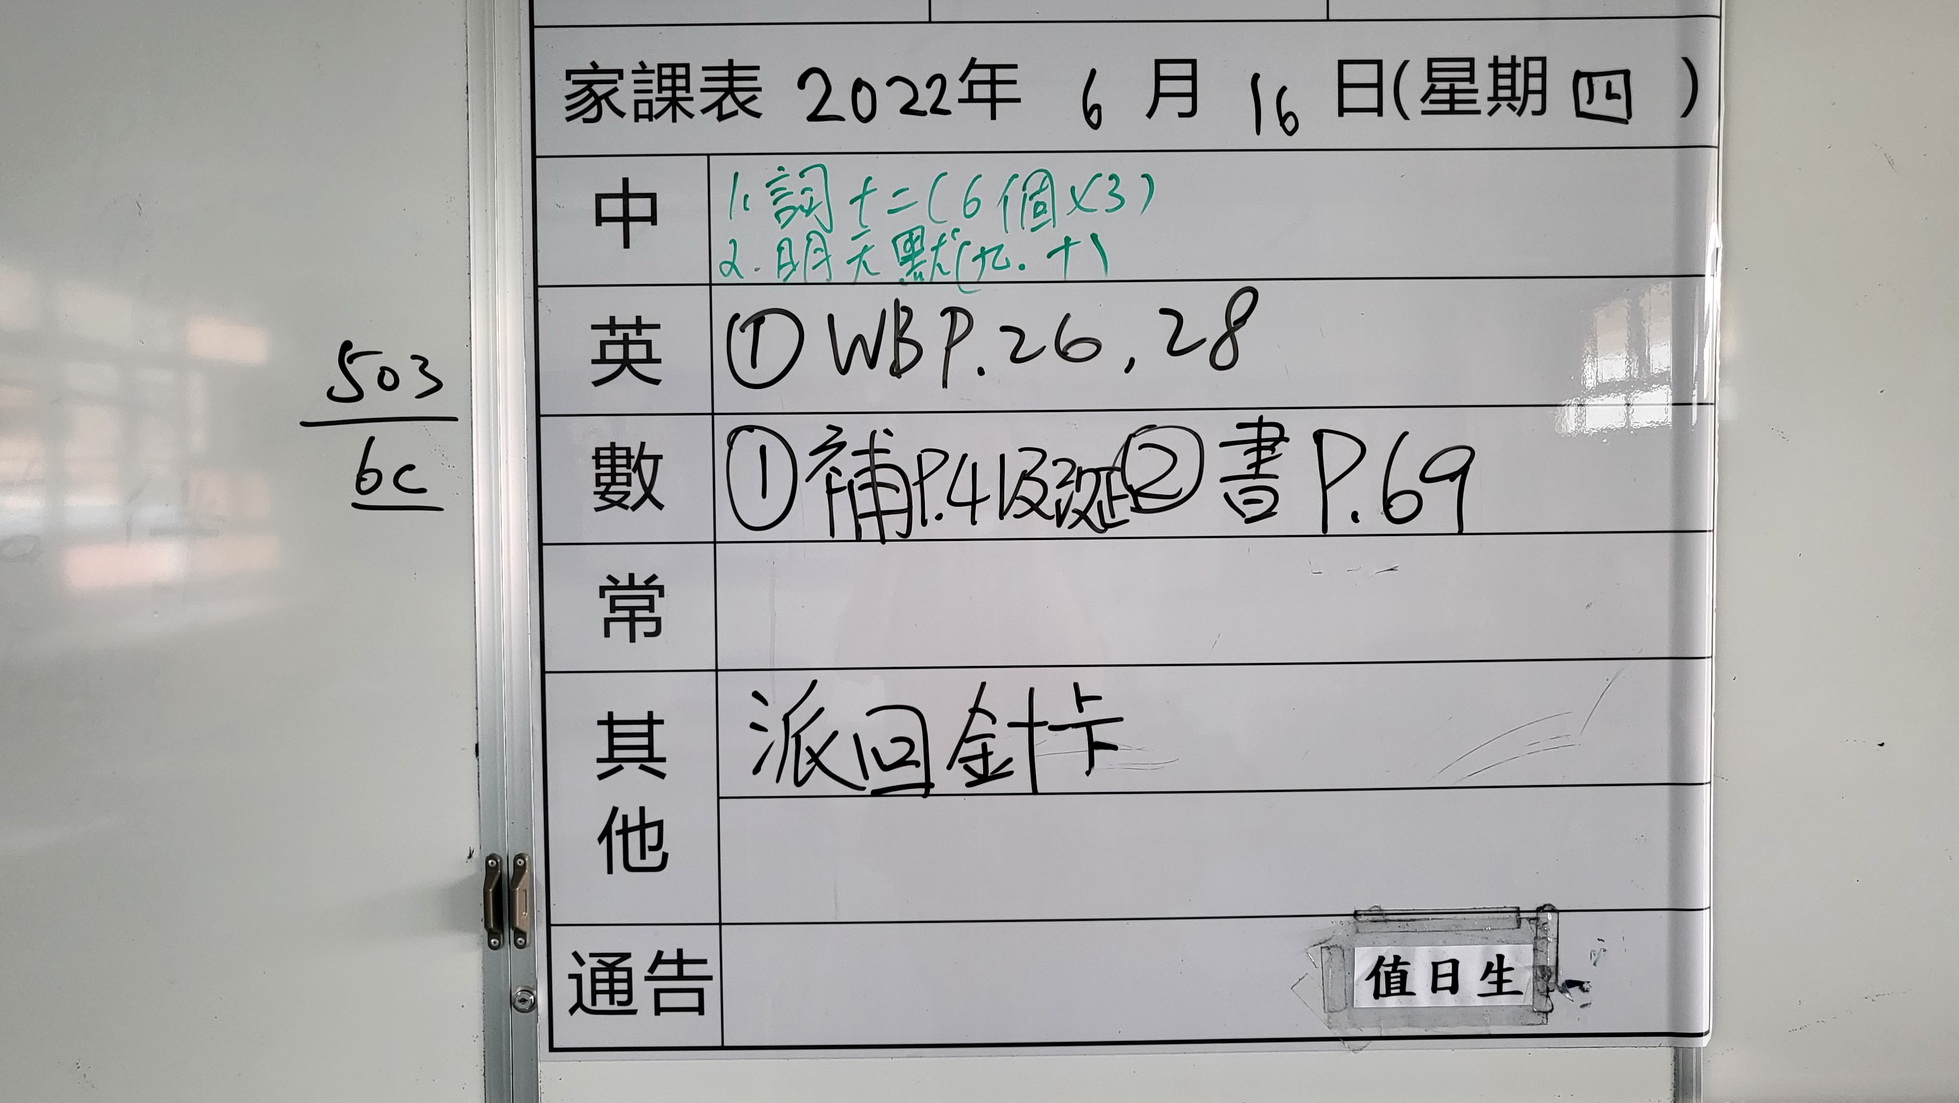 家課表 2022年 6 月 16 日(星期四)
中
1. 詞十二(6個×3)
2. 明天默(九.十)
英
① WB P.26, 28
數
① 補P.4及改正 ② 書 P.69
常
其他
派回針卡
通告
值日生
503
6C